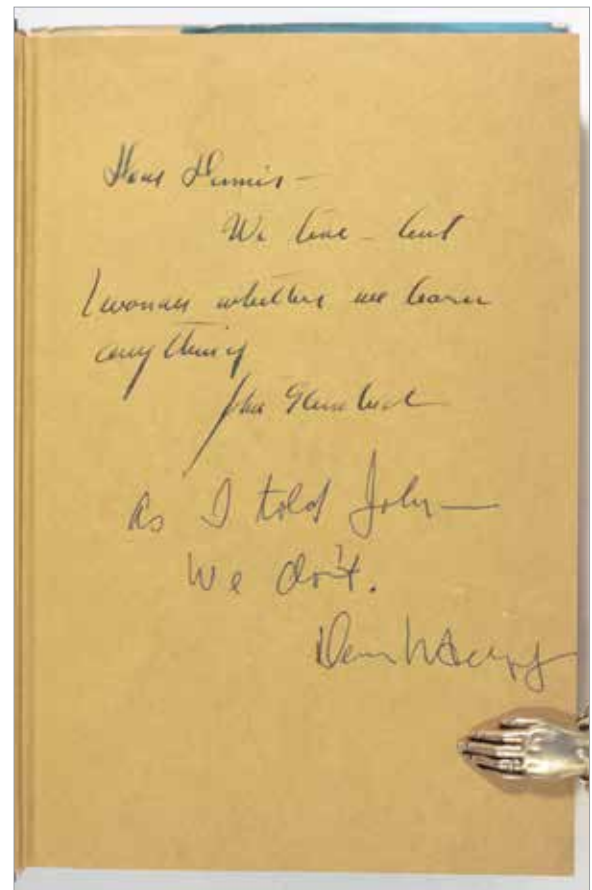 Dear Dennis –
We live – but
I wonder whether we learn
anything
John Steinbeck
As I told John—
We don't.
Dennis Murphy